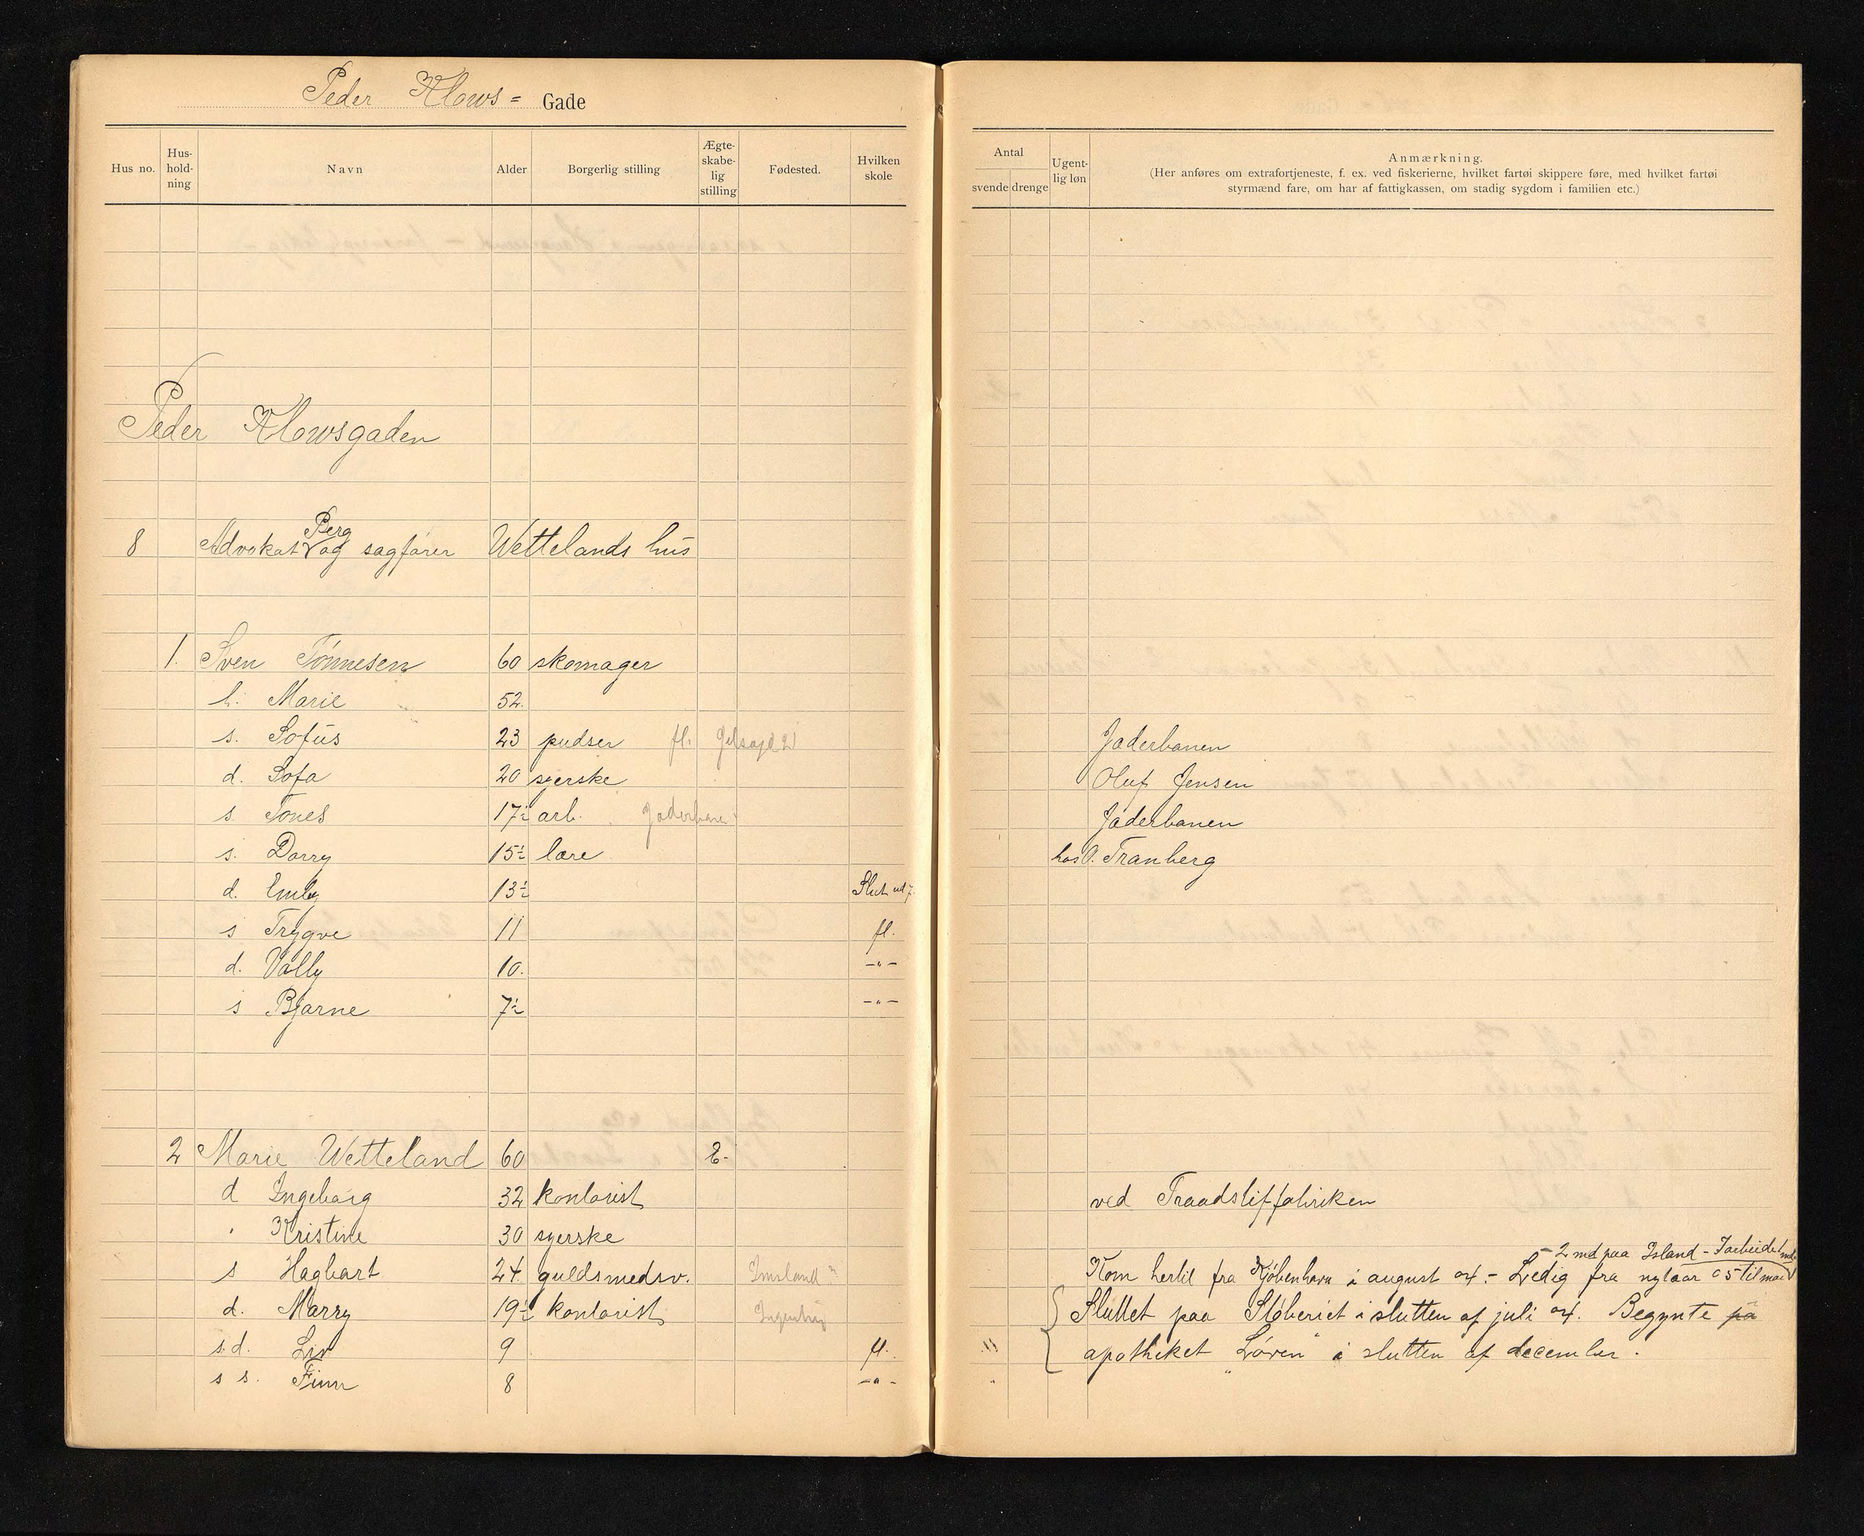 Peder Klows= Gade
Hus no. Hus-hold-ning Navn Alder Borgerlig stilling Ægte-skabe-lig stilling Fødested. Hvilken skole
Antal svende drenge Ugent-lig løn Anmærkning.
(Her anføres om extrafortjeneste, f. ex. ved fiskerierne, hvilket fartøi skippere føre, med hvilket fartøi
styrmænd fare, om har af fattigkassen, om stadig sygdom i familien etc.)
Peder Klowsgaden
Berg
8 Advokat og sagfører Wettelands hus
1. Sven Tönnesen 60 skomager
h. Marie 52.
s. Sofus 23 pudser fl. Jaderbanen
d. Sofa 20 syerske Oluf Jensen
s Tones 17½ arb. Jaderbanen Jaderbanen
s. Dorry 15½ lære hos O. Tranberg
d. Emly 13½ Slut
s Trygve 11 fl.
d. Vally 10. -"-
s Bjarne 7½ -"-
2 Marie Wetteland 60 E.
d Ingeborg 32 kontorist ved Traadstiffabriken
" Kristine 30 syerske
- 2 md paa Island - 1 arbeidet
s Hagbart 24 guldsmedsv. Imsland Kom hertil fra Kjøbenhavn i august 04. - Ledig fra nytaar 05 til
d. Marry 19½ kontorist Sluttet paa Støberiet i slutten af juli 04. Begynte på
s.d. Liv 9 fl. apotheket "Løven" i slutten af december.
s s. Finn 8 -"-